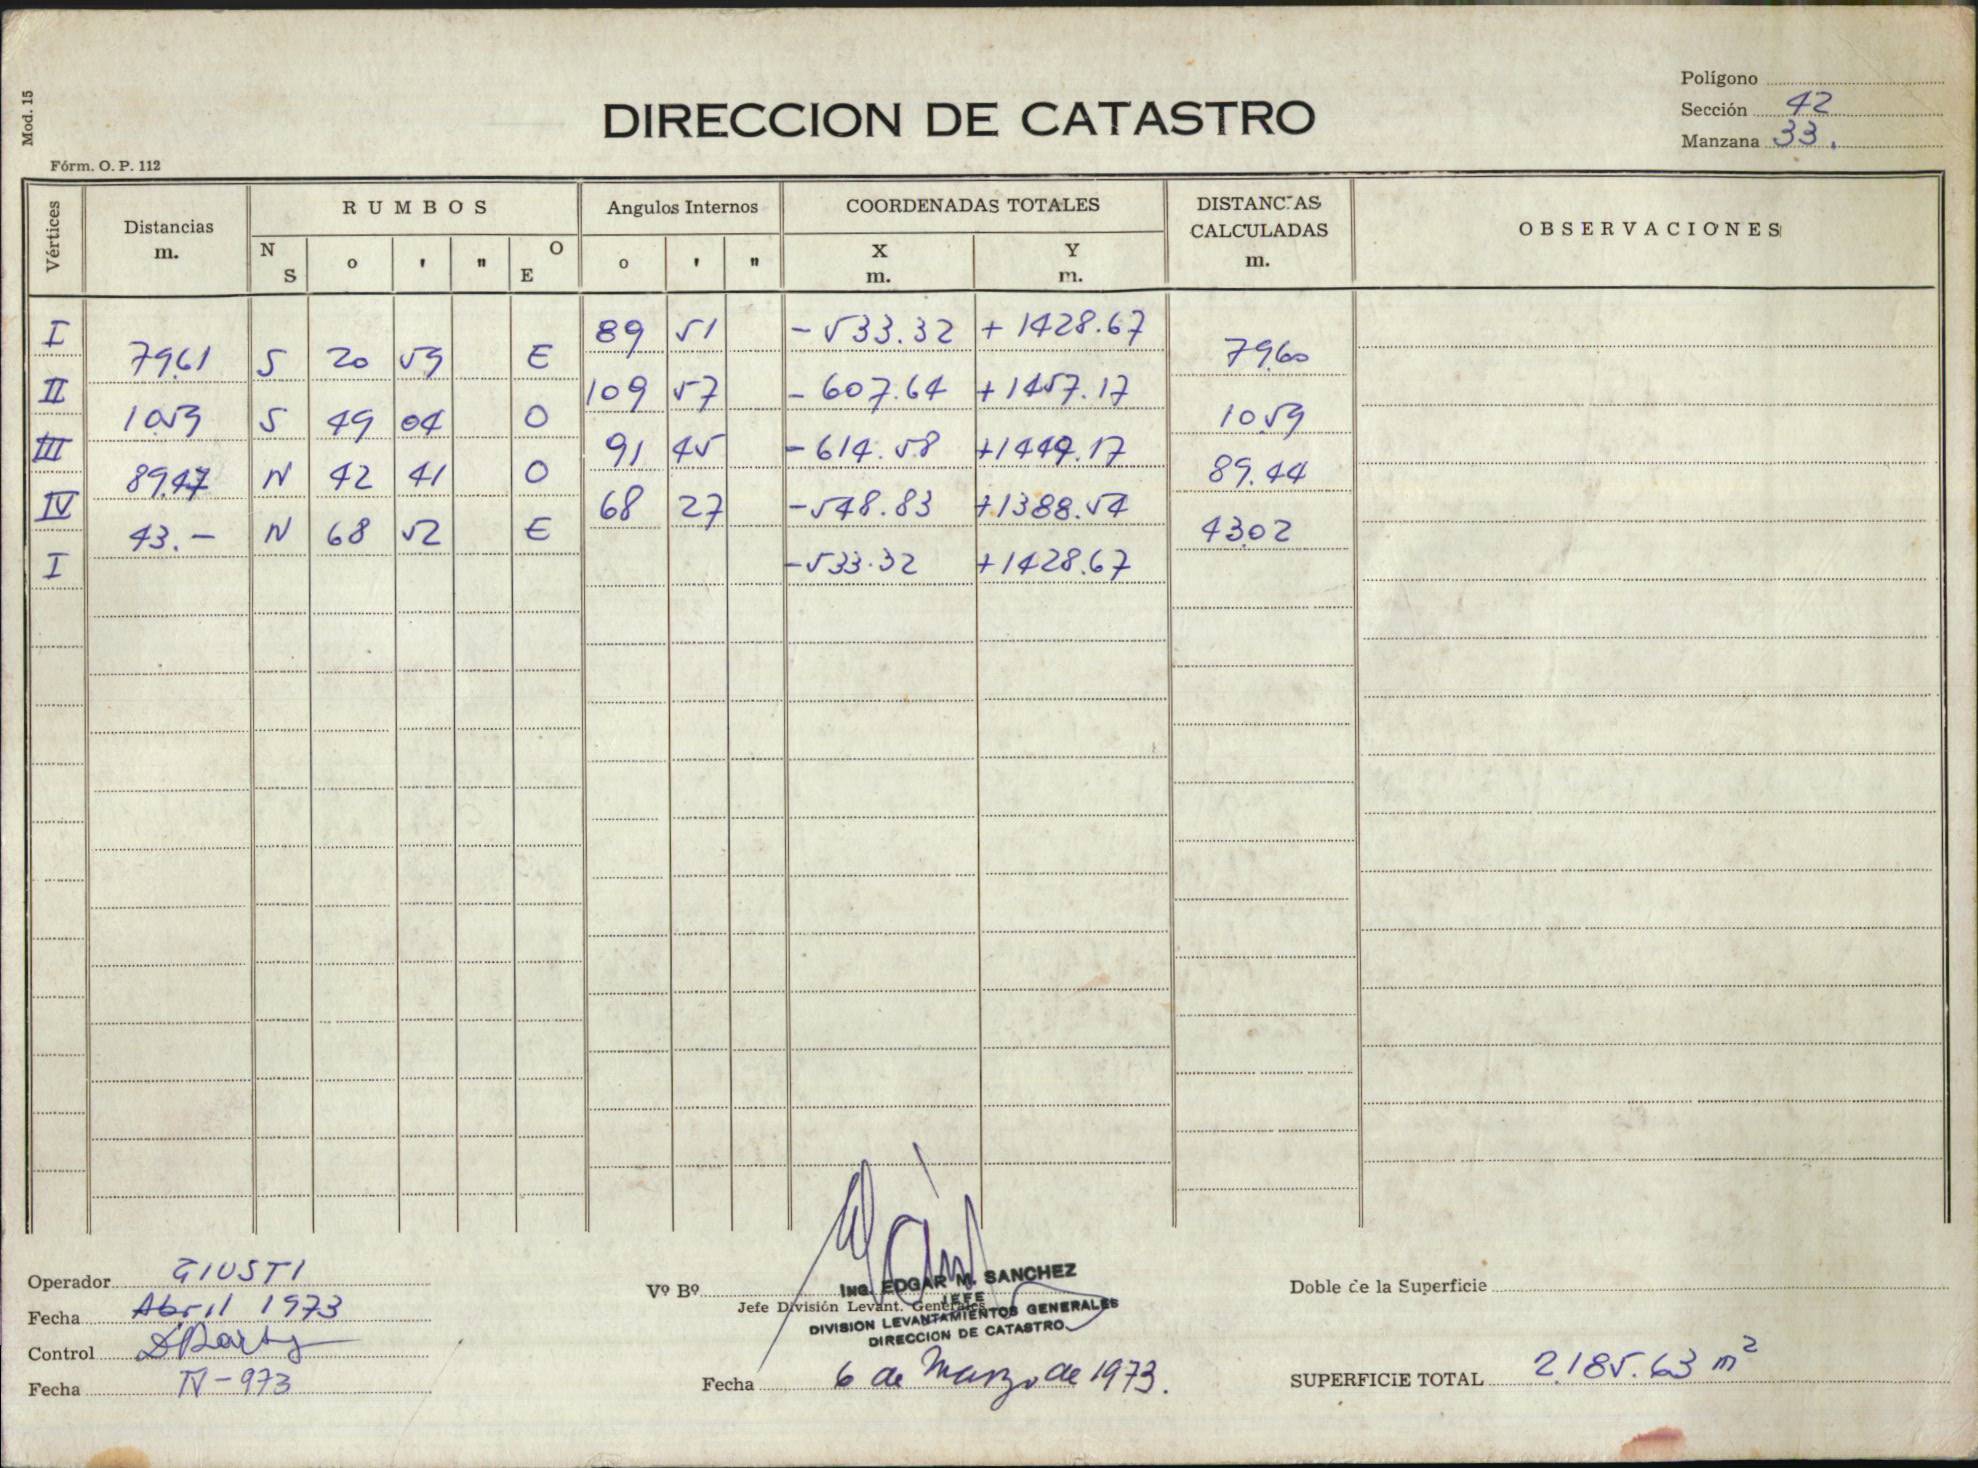 Mod. 15
Fórm. O. P. 112
DIRECCION DE CATASTRO
Polígono
Sección 42
Manzana 33.
Vértices Distancias m. RUMBOS N S o ' " O E Angulos Internos o ' " COORDENADAS TOTALES X m. Y m. DISTANCIAS CALCULADAS m. OBSERVACIONES
I 89 51 - 533.32 + 1428.67
79.61 S 20 59 E 79.60
II 109 57 - 607.64 + 1457.17
10.59 S 49 04 O 10.59
III 91 45 - 614.58 +1449.17
89.47 N 42 41 O 89.44
IV 68 27 -548.83 +1388.54
43.- N 68 52 E 43.02
I -533.32 +1428.67
Operador GIUSTI
Fecha Abril 1973
Control
Fecha IV-973
Vº Bº
Jefe División Levant. Generales
ING. EDGAR M. SANCHEZ
JEFE
DIVISION LEVANTAMIENTOS GENERALES
DIRECCION DE CATASTRO
Fecha 6 de Marzo de 1973.
Doble de la Superficie
SUPERFICIE TOTAL 2.185.63 m²